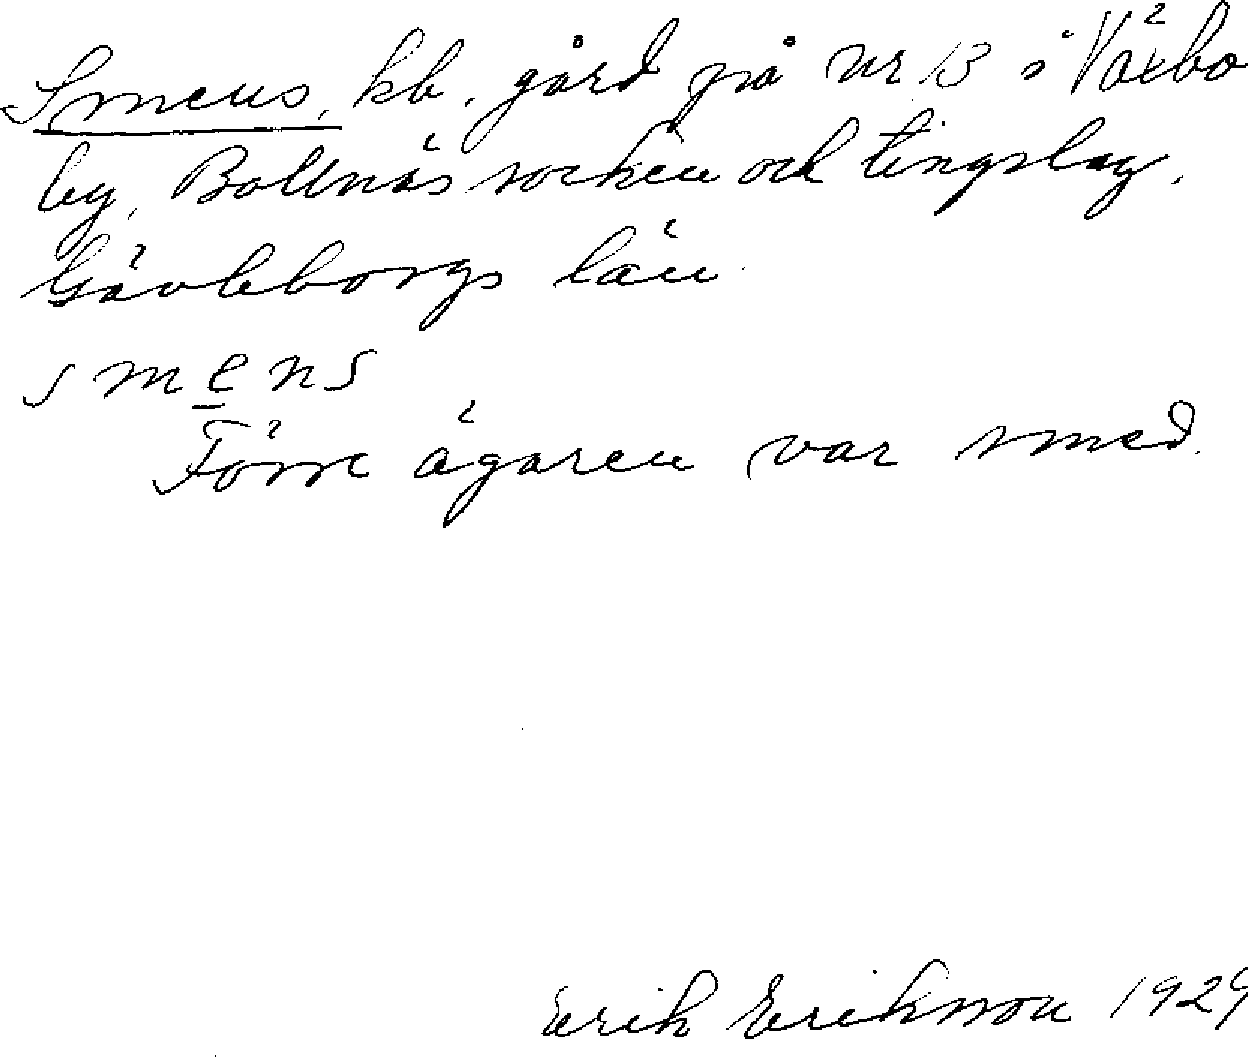 Smens, kb. gård på nr 13 i Växbo
by, Bollnäs socken och tingslag,
Gävleborgs län
smens
Förre ägaren var smed.
Erik Eriksson 1929